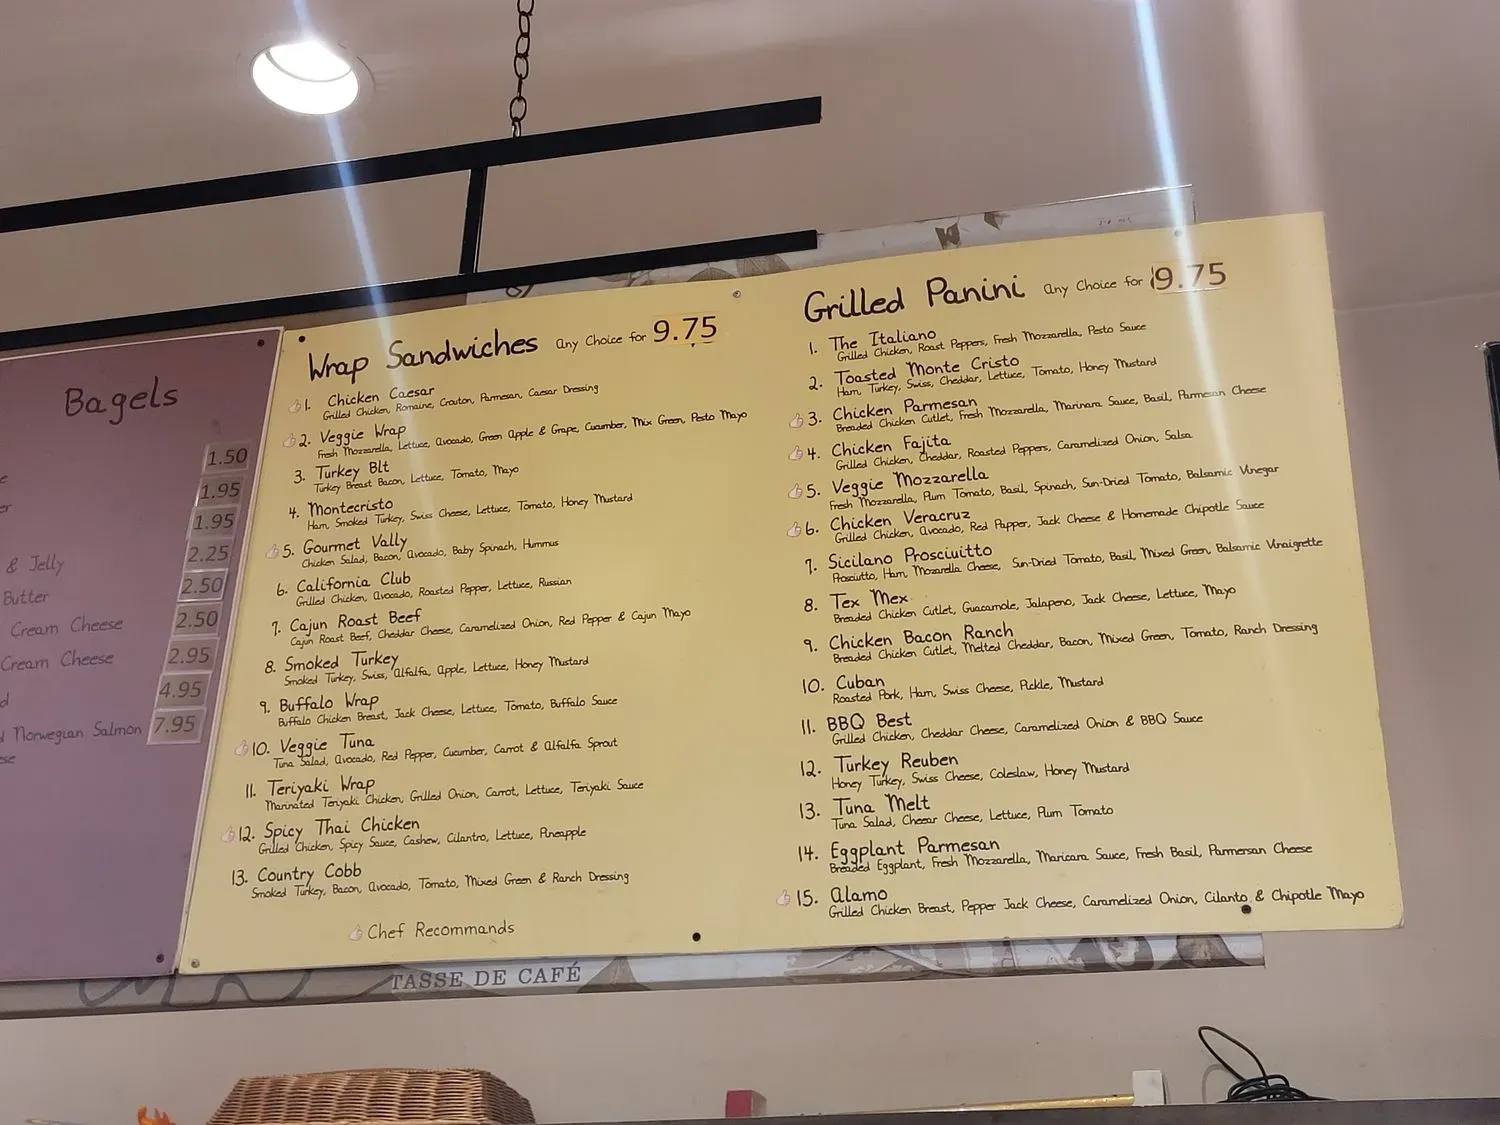 Bagels
1.50
1.95
1.95
& Jelly 2.25
Butter 2.50
Cream Cheese 2.50
Cream Cheese 2.95
4.95
Norwegian Salmon 7.95
Wrap Sandwiches any Choice for 9.75
1. Chicken Caesar
Grilled Chicken, Romaine, Crouton, Parmesan, Caesar Dressing
2. Veggie Wrap
Fresh Mozzarella, Lettuce, Avocado, Green Apple & Grape, Cucumber, Mix Green, Pesto Mayo
3. Turkey Blt
Turkey Breast Bacon, Lettuce, Tomato, Mayo
4. Montecristo
Ham, Smoked Turkey, Swiss Cheese, Lettuce, Tomato, Honey Mustard
5. Gourmet Vally
Chicken Salad, Bacon, Avocado, Baby Spinach, Hummus
6. California Club
Grilled Chicken, Avocado, Roasted Pepper, Lettuce, Russian
7. Cajun Roast Beef
Cajun Roast Beef, Cheddar Cheese, Caramelized Onion, Red Pepper & Cajun Mayo
8. Smoked Turkey
Smoked Turkey, Swiss, Alfalfa, Apple, Lettuce, Honey Mustard
9. Buffalo Wrap
Buffalo Chicken Breast, Jack Cheese, Lettuce, Tomato, Buffalo Sauce
10. Veggie Tuna
Tuna Salad, Avocado, Red Pepper, Cucumber, Carrot & Alfalfa Sprout
11. Teriyaki Wrap
Marinated Teriyaki Chicken, Grilled Onion, Carrot, Lettuce, Teriyaki Sauce
12. Spicy Thai Chicken
Grilled Chicken, Spicy Sauce, Cashew, Cilantro, Lettuce, Pineapple
13. Country Cobb
Smoked Turkey, Bacon, Avocado, Tomato, Mixed Green & Ranch Dressing
Chef Recommands
Grilled Panini any Choice for 9.75
1. The Italiano
Grilled Chicken, Roast Peppers, Fresh Mozzarella, Pesto Sauce
2. Toasted Monte Cristo
Ham, Turkey, Swiss, Cheddar, Lettuce, Tomato, Honey Mustard
3. Chicken Parmesan
Breaded Chicken Cutlet, Fresh Mozzarella, Marinara Sauce, Basil, Parmesan Cheese
4. Chicken Fajita
Grilled Chicken, Cheddar, Roasted Peppers, Caramelized Onion, Salsa
5. Veggie Mozzarella
Fresh Mozzarella, Plum Tomato, Basil, Spinach, Sun-Dried Tomato, Balsamic Vinegar
6. Chicken Veracruz
Grilled Chicken, Avocado, Red Papper, Jack Cheese & Homemade Chipotle Sauce
7. Sicilano Prosciuitto
Prosciutto, Ham, Mozarella Cheese, Sun-Dried Tomato, Basil, Mixed Green, Balsamic Vinaigrette
8. Tex Mex
Breaded Chicken Cutlet, Guacamole, Jalapeno, Jack Cheese, Lettuce, Mayo
9. Chicken Bacon Ranch
Breaded Chicken Cutlet, Melted Cheddar, Bacon, Mixed Green, Tomato, Ranch Dressing
10. Cuban
Roasted Pork, Ham, Swiss Cheese, Pickle, Mustard
11. BBQ Best
Grilled Chicken, Cheddar Cheese, Caramelized Onion & BBQ Sauce
12. Turkey Reuben
Honey Turkey, Swiss Cheese, Coleslaw, Honey Mustard
13. Tuna Melt
Tuna Salad, Chear Cheese, Lettuce, Plum Tomato
14. Eggplant Parmesan
Breaded Eggplant, Fresh Mozzarella, Maricara Sauce, Fresh Basil, Parmersan Cheese
15. Alamo
Grilled Chicken Breast, Pepper Jack Cheese, Caramelized Onion, Cilanto & Chipotle Mayo
TASSE DE CAFÉ